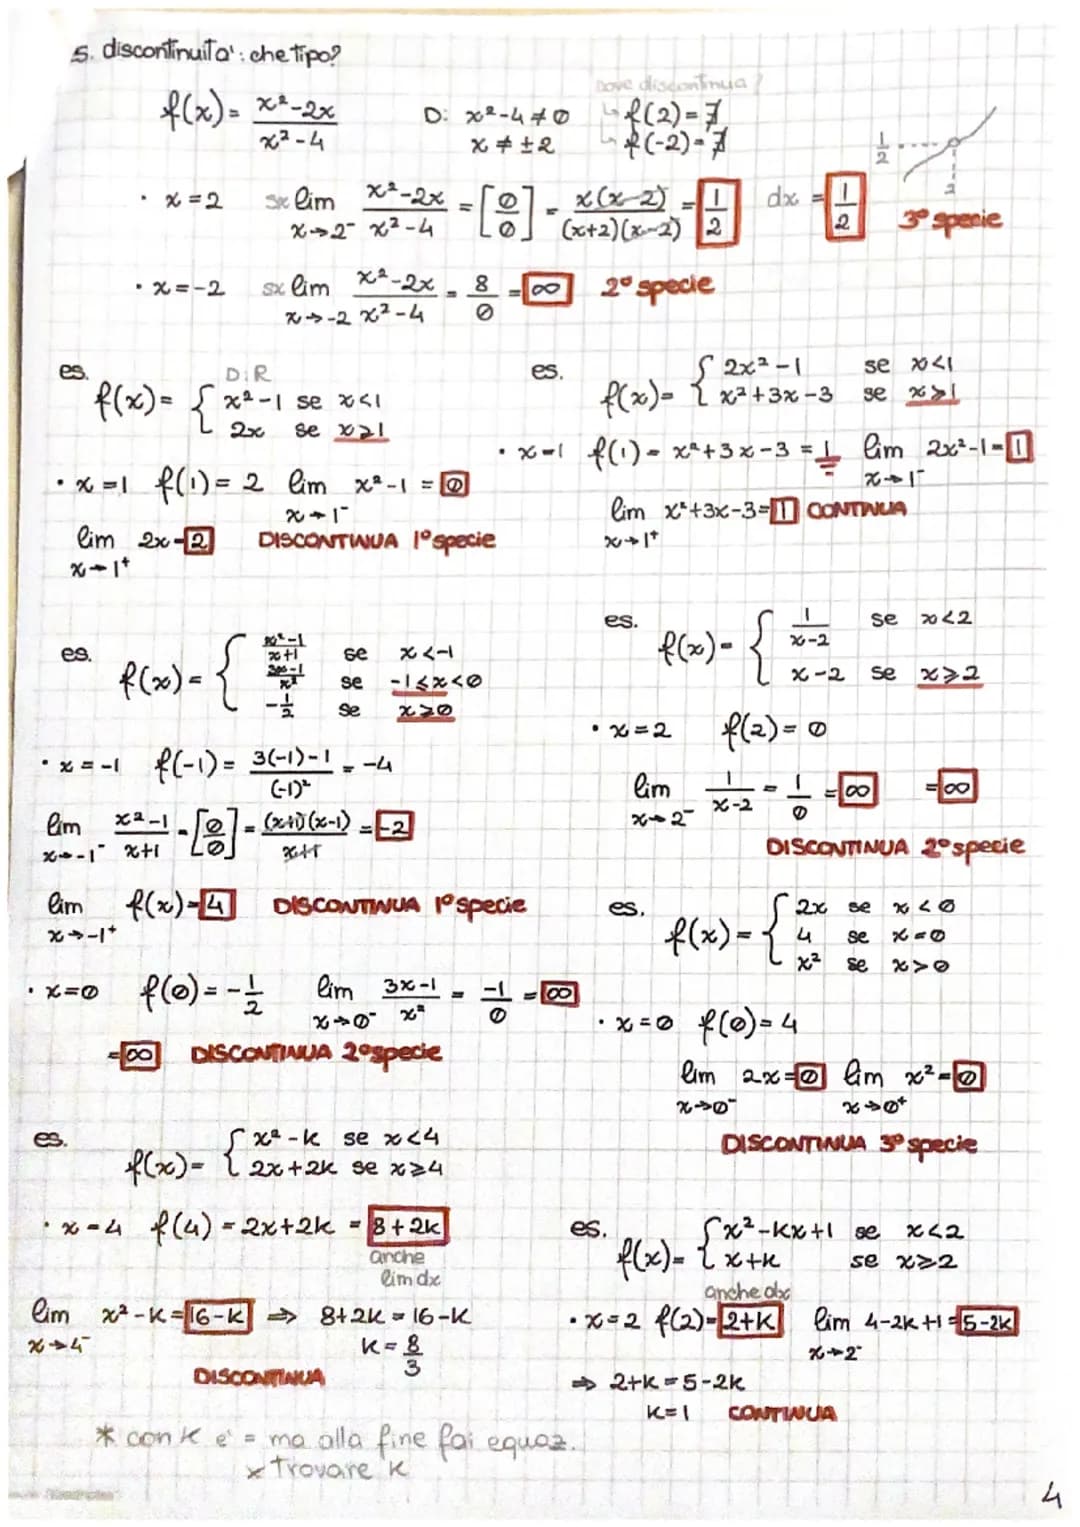 5. discontinuita': che tipo?
f(x) = x²-2x / x²-4
D: x²-4≠0
x ≠ ±2
Dove discontinua?
↳ f(2) = ∄
↳ f(-2) = ∄
1/2
2
• x=2 sx lim x→2⁻ x²-2x / x²-4 = [0/0] = x(x-2) / (x+2)(x-2) = 1/2 dx = 1/2 3° specie
• x=-2 sx lim x→-2 x²-2x / x²-4 = 8/0 = ∞ 2° specie
es.
D:R
f(x) = { x²-1 se x<1
2x se x≥1
• x=1 f(1) = 2 lim x→1⁻ x²-1 = 0
lim x→1⁺ 2x = 2 DISCONTINUA 1° specie
es.
f(x) = { 2x²-1 se x<1
x²+3x-3 se x≥1
• x=1 f(1) = x²+3x-3 = 1 lim x→1⁻ 2x²-1 = 1
lim x→1⁺ x²+3x-3 = 1 CONTINUA
es.
f(x) = { x²-1 / x+1 se x<-1
3x-1 / x² se -1≤x<0
-1/2 se x≥0
• x=-1 f(-1) = 3(-1)-1 / (-1)² = -4
lim x→-1⁻ x²-1 / x+1 = [0/0] = (x+1)(x-1) / x+1 = -2
lim x→-1⁺ f(x) = 4 DISCONTINUA 1° specie
• x=0 f(0) = -1/2 lim x→0⁻ 3x-1 / x² = -1/0 = ∞
= ∞ DISCONTINUA 2° specie
es.
f(x) = { 1 / x-2 se x<2
x-2 se x≥2
• x=2 f(2) = 0
lim x→2⁻ 1 / x-2 = 1/0 = ∞ = ∞
DISCONTINUA 2° specie
es.
f(x) = { 2x se x<0
4 se x=0
x² se x>0
• x=0 f(0) = 4
lim x→0⁻ 2x = 0 lim x→0⁺ x² = 0
DISCONTINUA 3° specie
es.
f(x) = { x²-k se x<4
2x+2k se x≥4
• x=4 f(4) = 2x+2k = 8+2k
anche
lim dx
lim x→4⁻ x²-k = 16-k ⇒ 8+2k = 16-k
k = 8/3
DISCONTINUA
es.
f(x) = { x²-kx+1 se x<2
x+k se x≥2
anche dx
• x=2 f(2) = 2+k lim x→2⁻ 4-2k+1 = 5-2k
⇒ 2+k = 5-2k
k=1 CONTINUA
* con k e' = ma alla fine fai equaz.
x trovare k
4